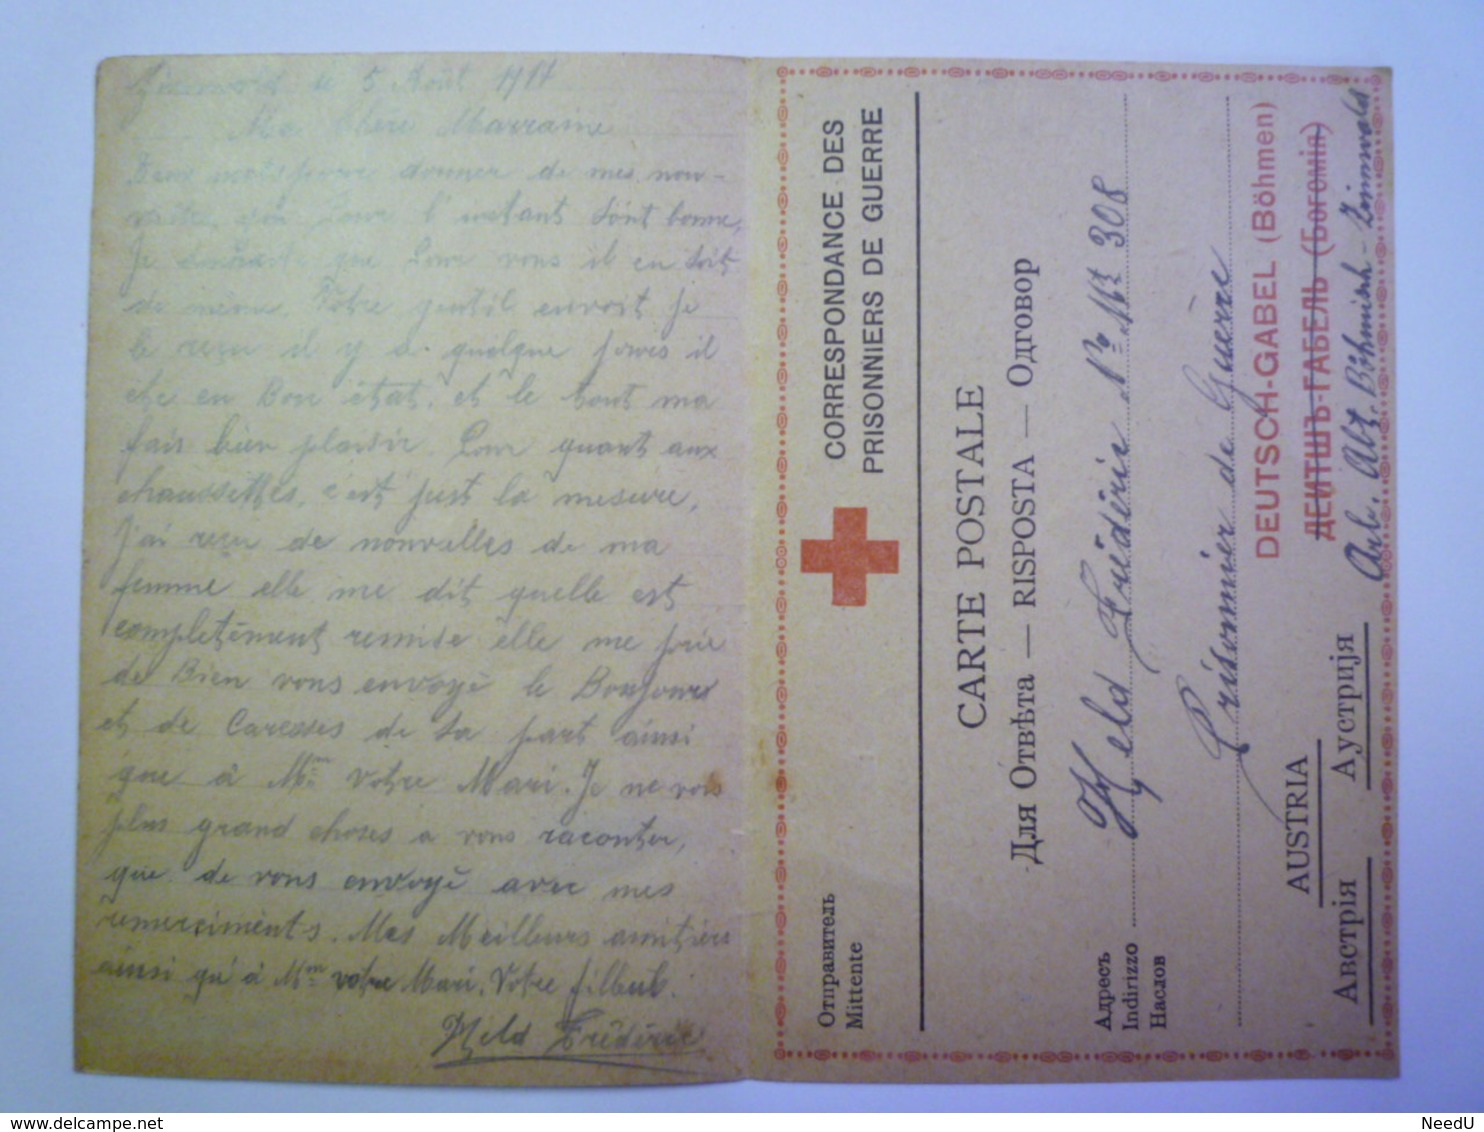 le 5 Août 1917
Ma Chère Marraine
Deux mots pour donner de mes nou-
qui pour l'instant sont bonne,
Je souhaite que pour vous il en soit
de même. Votre gentil envoit je
le reçu il y a quelque jours il
etè en Bon état, et le tout ma
fais bien plaisir. Pour quant aux
chaussettes, c'est just la mesure,
J'ai reçu de nouvelles de ma
femme elle me dit quelle est
complètement remise elle me prie
de Bien vous envoyé le Bonjours
et de Caresses de sa part ainsi
que à Mr votre Mari. Je ne vois
plus grand choses a vous raconter,
que de vous envoyé avec mes
remerciments. Mes Meilleurs amitiers
ainsi qu'à Mr votre Mari. Votre filleul.
Held Frédéric
CORRESPONDANCE DES
PRISONNIERS DE GUERRE
Отправитель
Mittente
CARTE POSTALE
Для Отвѣта — RISPOSTA — Одговор
Адресъ
Indirizzo
Наслов
Held Frédéric No Mz 308
Prisonnier de Guèrre
DEUTSCH-GABEL (Böhmen)
ДЕИТШЪ-ГАБЕЛЬ (Богомин)
Arb. Abt. Böhmisch-Zinnwald
AUSTRIA
Австрія Аустрија
NeedU